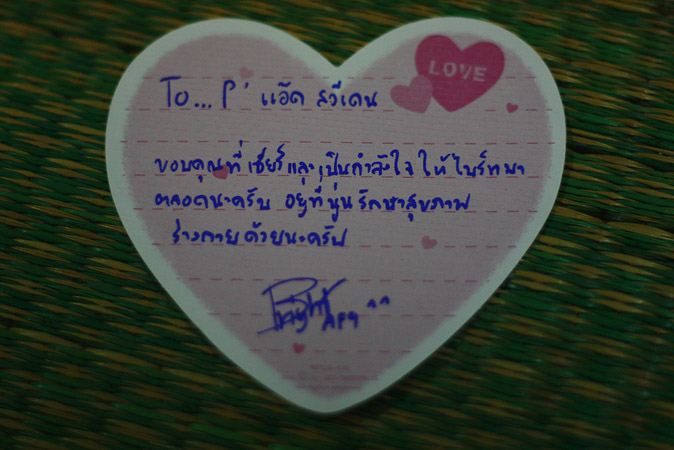 LOVE
To... P' แอ๊ด สวีเดน
ขอบคุณที่เชียร์และเป็นกำลังใจให้ไบร์ทมา
ตลอดนะครับ อยู่ที่นู่นรักษาสุขภาพ
ร่างกายด้วยนะครับ
Bright AF9 ^^